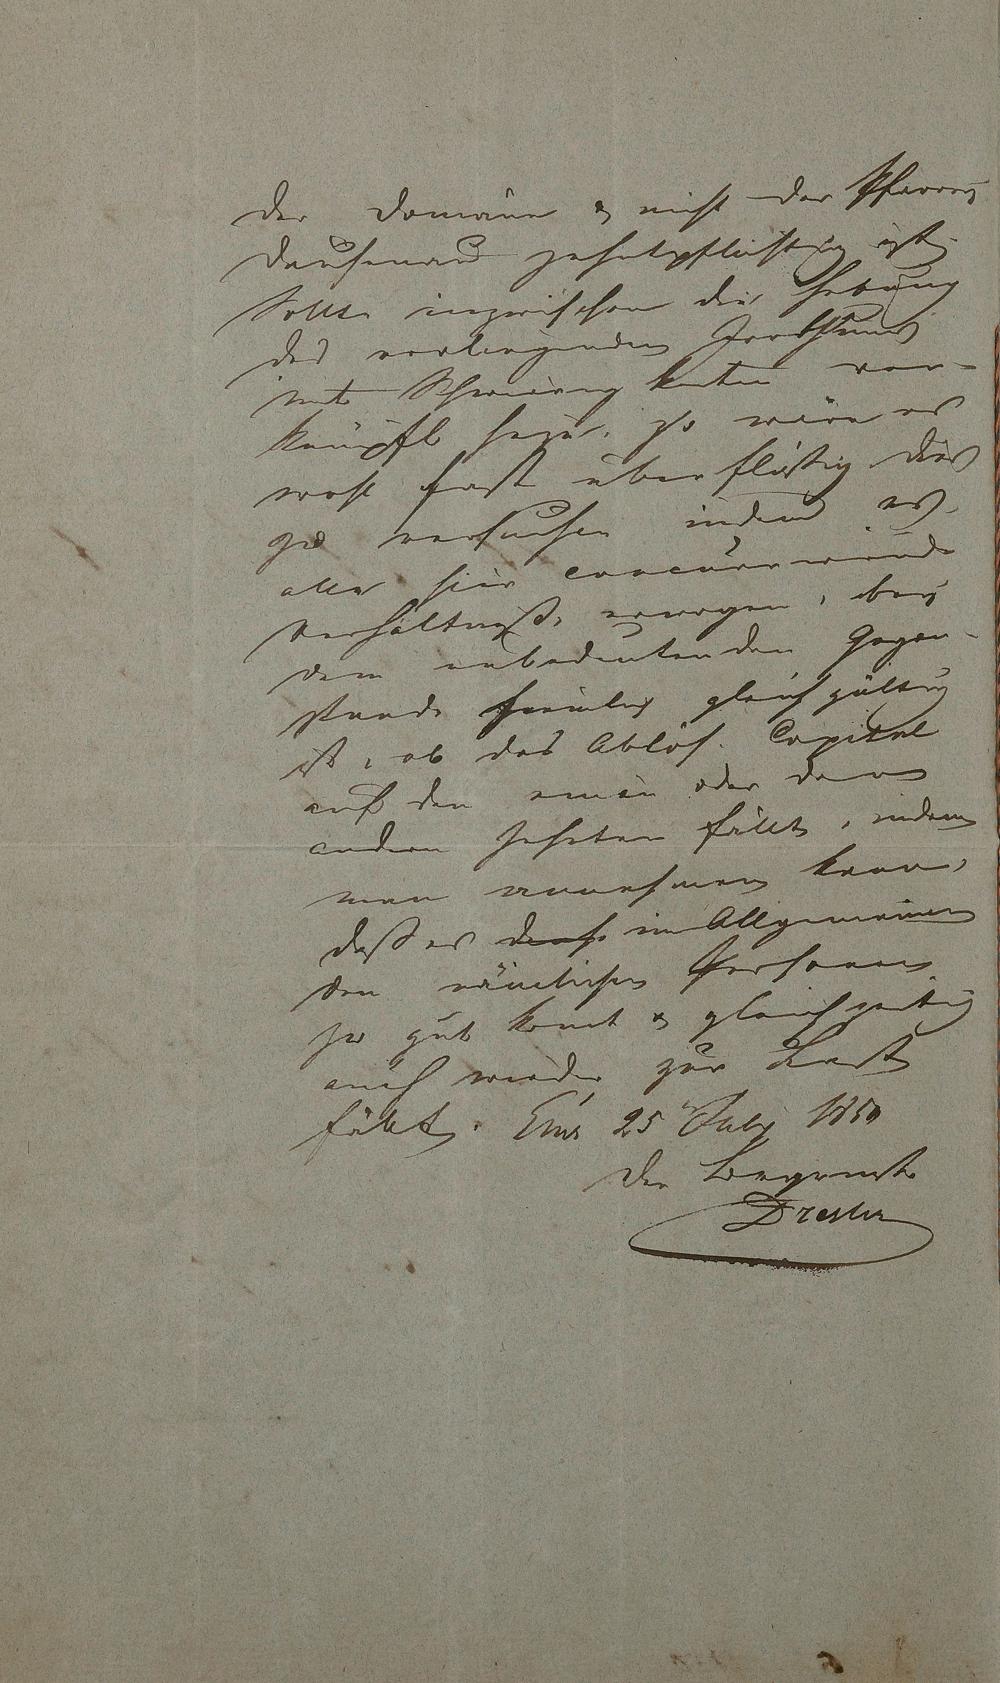 der Domäne & nicht der Pfarrey
Dausenau zehntpflichtig ist.
Sollte inzwischen die Hebung
des vorliegenden Irrthums
mit Schwierigkeiten ver-
knüpft seyn, so wäre es
wohl fast überflüßig dies
zu versuchen indem es,
alle hier concurrirende
Verhältniße erwogen, bey
dem unbedeutenden Gegen-
stande ziemlich gleichgültig
ist, ob das Ablös. Capital
auf den einen oder den
andern Zehnten fällt, indem
man annehmen kann,
daß es doch im Allgemeinen
den nämlichen Personen
zu gut komt & gleichzeitig
auch wieder zur Last
fällt. Ems 25 July 1850
Der
Dresler